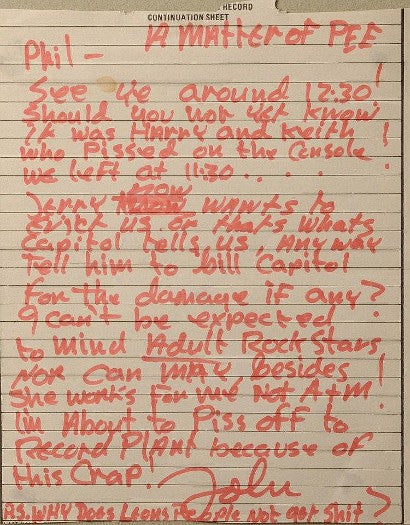 RECORD
CONTINUATION SHEET
A MATTER OF PEE
Phil —
See ye around 12:30!
Should you not yet know
it was Harry and Keith
who Pissed on the Console!
we left at 11:30 . . .
now
Jerry wants to
Evict us or thats whats
Capitol tells us, Anyway
Tell him to bill Capitol
For the damage if any?
I can't be expected
to mind Adult Rock Stars
Nor Can MAY besides!
She works for me Not A+M
I'm About to Piss off to
Record Plant because of
this Crap.
John
P.S. WHY Does Leons People Not got Shit?